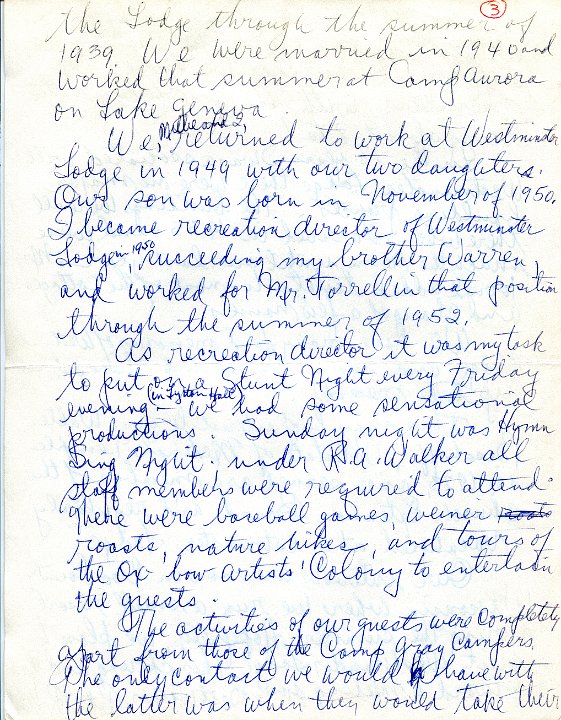 3
the Lodge through the summer of
1939. We were married in 1940 and
worked that summer at Camp Aurora
on Lake Geneva.
We, Millie and I, returned to work at Westminster
Lodge in 1949 with our two daughters.
Our son was born in November of 1950.
I became recreation director of Westminster
Lodge in 1950, succeeding my brother Warren,
and worked for Mr. Torrell in that position
through the summer of 1952.
As recreation director it was my task
to put on a Stunt Night every Friday
evening (in Lyton Hall) – we had some sensational
productions. Sunday night was Hymn
Sing Night. under R.A. Walker all
staff members were required to attend.
There were baseball games, weiner roasts
roasts, nature hikes, and tours of
the Ox-bow Artists' Colony to entertain
the guests.
The activities of our guests were completely
apart from those of the Camp Gray Campers.
The only contact we would have with
the latter was when they would take their